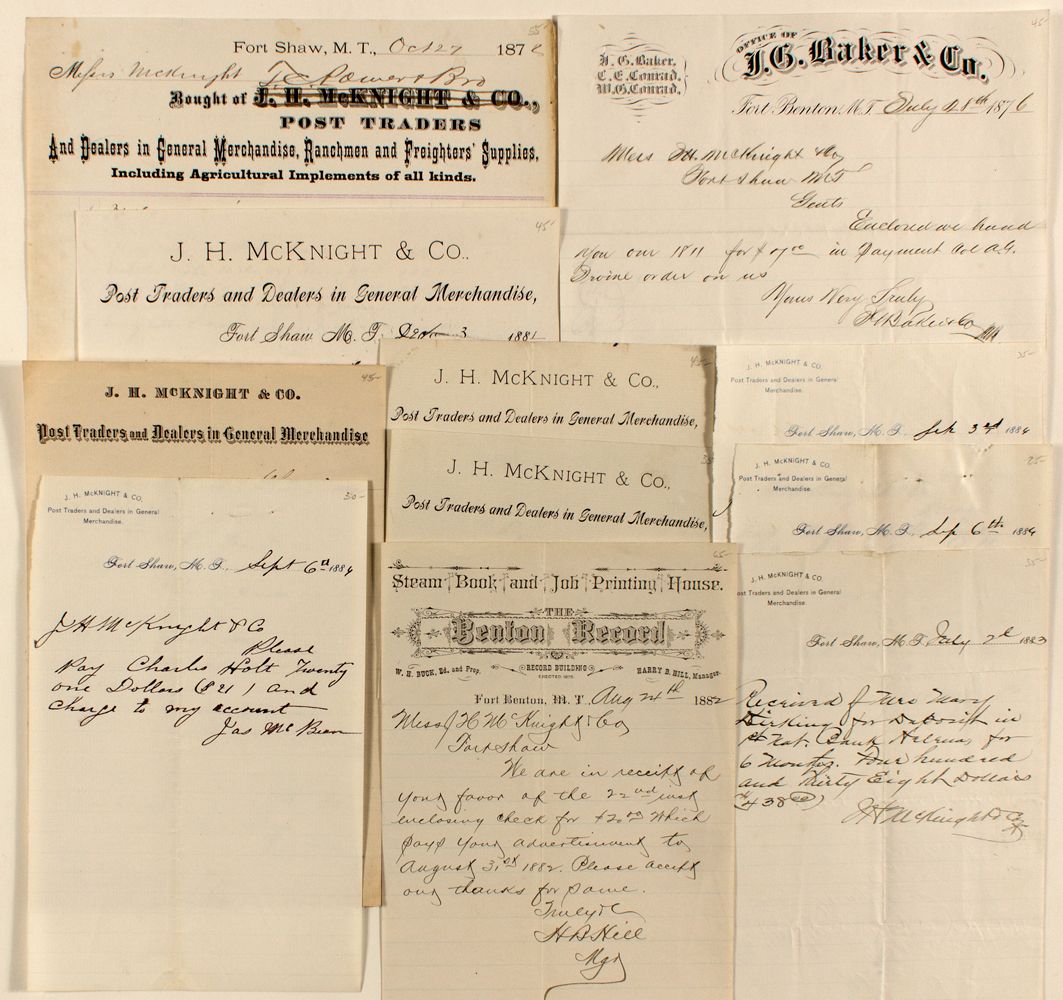 55-
Fort Shaw, M. T., Oct 27 187
Messrs McKnight T C Power & Bro
Bought of J. H. McKNIGHT & CO.,
POST TRADERS
And Dealers in General Merchandise, Ranchmen and Freighters' Supplies,
Including Agricultural Implements of all kinds.
45-
OFFICE OF
J. G. Baker & Co.
J. G. Baker.
C. E. Conrad.
W. G. Conrad.
Fort Benton, M. T. July 18th 1876
Mess JH. McKnight & Co
Fort Shaw MT
Gents
Enclosed we hand
you our 1811 for $ in Payment
order on us
Yours Very Truly
J G Baker & Co
45-
J. H. McKNIGHT & CO.,
Post Traders and Dealers in General Merchandise,
Fort Shaw M. T. 3 1881
45-
J. H. McKNIGHT & CO.
Post Traders and Dealers in General Merchandise
45-
J. H. McKNIGHT & CO.,
Post Traders and Dealers in General Merchandise,
35
J. H. McKNIGHT & CO.,
Post Traders and Dealers in General Merchandise,
35-
J. H. McKNIGHT & CO.
Post Traders and Dealers in General
Merchandise.
Fort Shaw, M. T., Sep 3rd 1884
25-
J. H. McKNIGHT & CO.
Post Traders and Dealers in General
Merchandise.
Fort Shaw, M. T., Sep 6th 1884
30-
J. H. McKNIGHT & CO.
Post Traders and Dealers in General
Merchandise.
Fort Shaw, M. T., Sept 6th 1884
J H McKnight & Co
Please
Pay Charles Holt Twenty
one Dollars ($21) and
Charge to my account
Jas McBean
65-
Steam Book and Job Printing House.
THE
Benton Record
W. H. BUCK, Ed. and Prop.
RECORD BUILDING
ERECTED 1875
HARRY B. HILL, Manager.
Fort Benton, M. T. Aug 24th 1882
Mess J H McKnight & Co
Fort Shaw
We are in receipt of
your favor of the 22nd inst
enclosing check for $20 Which
pays your advertisement to
August 31st 1882. Please accept
our thanks for same.
Truly &c
H B Hill
Mgr
35-
J. H. McKNIGHT & CO.
Post Traders and Dealers in General
Merchandise.
Fort Shaw, M. T. July 2d 1883
Received of Mrs Mary
for Deposit in
1st Nat. Bank Helena, for
6 Months. Four hundred
and Thirty Eight Dollars
($438 00)
J H McKnight & Co